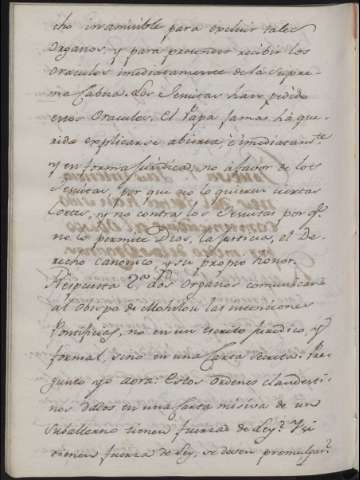 cho inamisible para excluir tales
Organos; y para pretender recibir los
Oraculos imediatamente de la Supre-
ma Cabeza. Los Jesuitas han pedido
estos Oraculos. El Papa jamas há que-
rido explicarse abierta, è imediatam.te
y en forma juridica, no a favor de los
Jesuitas, por que no lo quieren ciertas
Cortes, y no contra los Jesuitas por q.e
no lo permite Dios, la justicia, el De-
recho Canonico y su propio honor.
Respuesta 2.a Los Organos comunicaron
al Obispo de Mohilou las intenciones
Pontificias, no en un escrito juridico, y
formal, sino en una Carta secreta. Pre-
gunto yo aora: Estos Ordenes clandesti-
nos dados en una Carta misiva de un
Subalterno tienen fuerza de Ley? Y si
tienen fuerza de Ley, se deven promulgar?